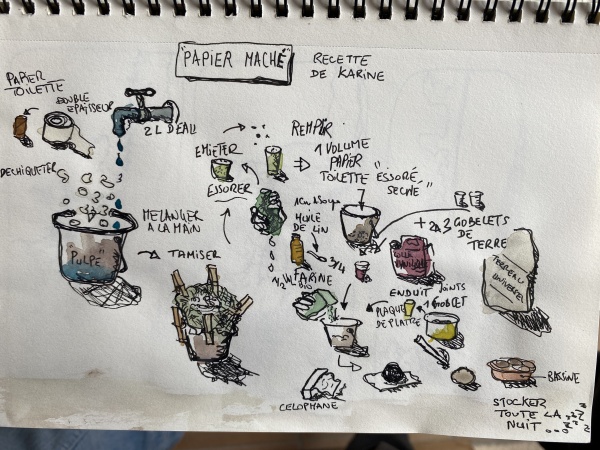 "PAPiER MACHÉ"
RECETTE
DE KARINE
PAPIER
TOILETTE
DOUBLE
EPAISSEUR
2 L D'EAU
DECHIQUETER
REMPLIR
EMIETER
1 VOLUME
PAPIER
TOILETTE "ESSORÉ,
SECHÉ"
ESSORER
MELANGER
A LA MAIN
"PULPE"
TAMISER
HUILE
DE LIN
3/4
FARINE
+ 2 à 3 GOBELETS
DE TERRE
TERREAU
UNIVERSEL
ENDUIT JOINTS
PLAQUE
DE PLATRE
1 GOBELET
CELOPHANE
BASSINE
STOCKER
TOUTE LA
NUIT